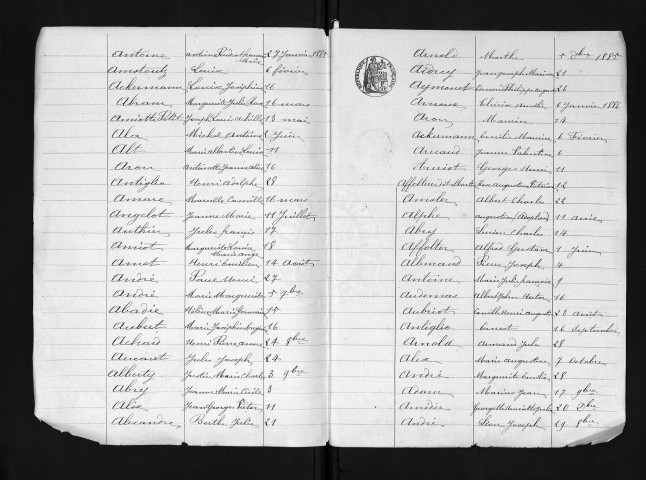 Antoine 27 Janvier 1885
Amstoutz Louis 6 février
Ackermann Louise Joséphine 16
Abram Marguerite Julie 16 mars
Amiotte Petit Joseph Louis Achille 13 mai
Alex Michel Antoine 1 Juin
Alt Marie Albertine Louise 11
Aron Antoinette Jeanne 16
Antiglio Henri Adolphe 28
Amare Marcelle Camille 10 mars
Angelot Jeanne Marie 11 Juillet
Authier Jules françois 17
Amiot Marguerite Louise 18
Amet Henri Emilien 14 Août
André Paul Henri 27
André Marie Marguerite 5 7bre
Abadie Hélène Marie Germaine 15
Aubert Marie Joséphine 16
Achard Henri Pierre 24 8bre
Aucant Jules Joseph 24
Alberty Justin Marie Charles 3 9bre
Abry Jeanne Marie Cécile 3
Alix Jean Georges Victor 11
Alexandre Berthe Julie 21
Arnold Marthe 5 Xbre 1885
Joseph Marius 21
Aymonet Philippe 26
6 Janvier 1886
Aron Maurice 14
Ackermann Emile Maurice 6 Février
Arcaud Jeanne Valentine 6
Henriot Georges Henri 11
Affolter dit Marti Rose Augustine 12
Amsler Albert Charles 22
Alphe Augustine 11 Avril
Abry Lucien Charles 14
Affolter Alfred Gustave 1 Juin
Allemand Pierre Joseph 4
Antoine Marie Julie 9
Audemas Albert John Hector 16
Aubriot Camille Henri August 23 Août
Antiglio Ernest 16 Septembre
Arnold Armand Jules 28
Alex Marie Augustine 7 Octobre
André Marguerite Emilie 28
Adam Marius Jean 17 9bre
Amédée Georges 20 Xbre
André Léon Joseph 29 8bre